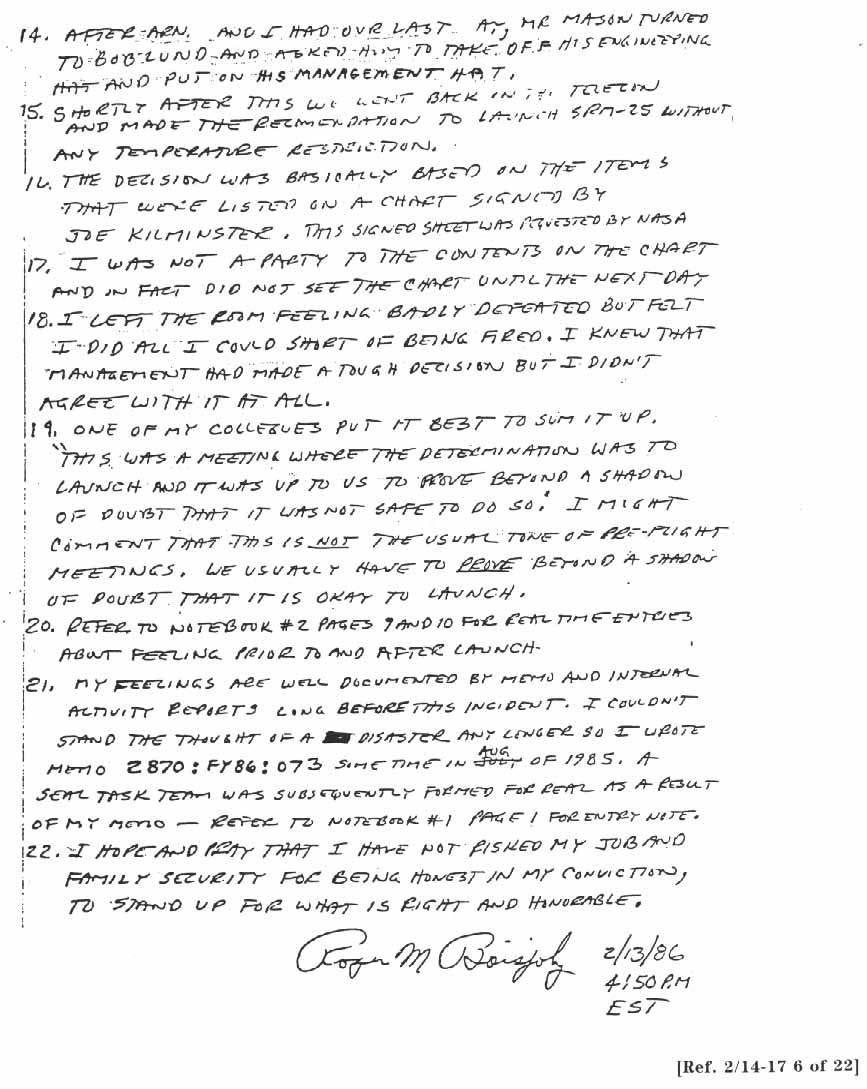 14. AFTER ARN. AND I HAD OUR LAST   MR MASON TURNED
TO BOB LUND AND ASKED HIM TO TAKE OFF HIS ENGINEERING
HAT AND PUT ON HIS MANAGEMENT HAT.
15. SHORTLY AFTER THIS WE WENT BACK IN   TELECON
AND MADE THE RECMENDATION TO LAUNCH SRM-25 WITHOUT
ANY TEMPERATURE RESTRICTION.
16. THE DECISION WAS BASICALLY BASED ON THE ITEMS
THAT WERE LISTED ON A CHART SIGNED BY
JOE KILMINSTER. THIS SIGNED SHEET WAS REQUESTED BY NASA
17. I WAS NOT A PARTY TO THE CONTENTS ON THE CHART
AND IN FACT DID NOT SEE THE CHART UNTIL THE NEXT DAY
18. I LEFT THE ROOM FEELING BADLY DEFEATED BUT FELT
I DID ALL I COULD SHORT OF BEING FIRED. I KNEW THAT
MANAGEMENT HAD MADE A TOUGH DECISION BUT I DIDN'T
AGREE WITH IT AT ALL.
19. ONE OF MY COLLEGUES PUT IT BEST TO SUM IT UP.
"THIS WAS A MEETING WHERE THE DETERMINATION WAS TO
LAUNCH AND IT WAS UP TO US TO PROVE BEYOND A SHADOW
OF DOUBT THAT IT WAS NOT SAFE TO DO SO." I MIGHT
COMMENT THAT THIS IS NOT THE USUAL TONE OF PRE-FLIGHT
MEETINGS. WE USUALLY HAVE TO PROVE BEYOND A SHADOW
OF DOUBT THAT IT IS OKAY TO LAUNCH.
20. REFER TO NOTEBOOK #2 PAGES 9 AND 10 FOR REAL TIME ENTRIES
ABOUT FEELING PRIOR TO AND AFTER LAUNCH.
21. MY FEELINGS ARE WELL DOCUMENTED BY MEMO AND INTERNAL
ACTIVITY REPORTS LONG BEFORE THIS INCIDENT. I COULDN'T
STAND THE THOUGHT OF A DISASTER ANY LONGER SO I WROTE
MEMO 2870:FY86:073 SOMETIME IN JULY AUG OF 1985. A
SEAL TASK TEAM WAS SUBSEQUENTLY FORMED FOR REAL AS A RESULT
OF MY MEMO — REFER TO NOTEBOOK #1 PAGE 1 FOR ENTRY NOTE.
22. I HOPE AND PRAY THAT I HAVE NOT RISKED MY JOB AND
FAMILY SECURITY FOR BEING HONEST IN MY CONVICTION,
TO STAND UP FOR WHAT IS RIGHT AND HONORABLE.
Roger M Boisjoly 2/13/86
4:50 P.M
EST
[Ref. 2/14-17 6 of 22]